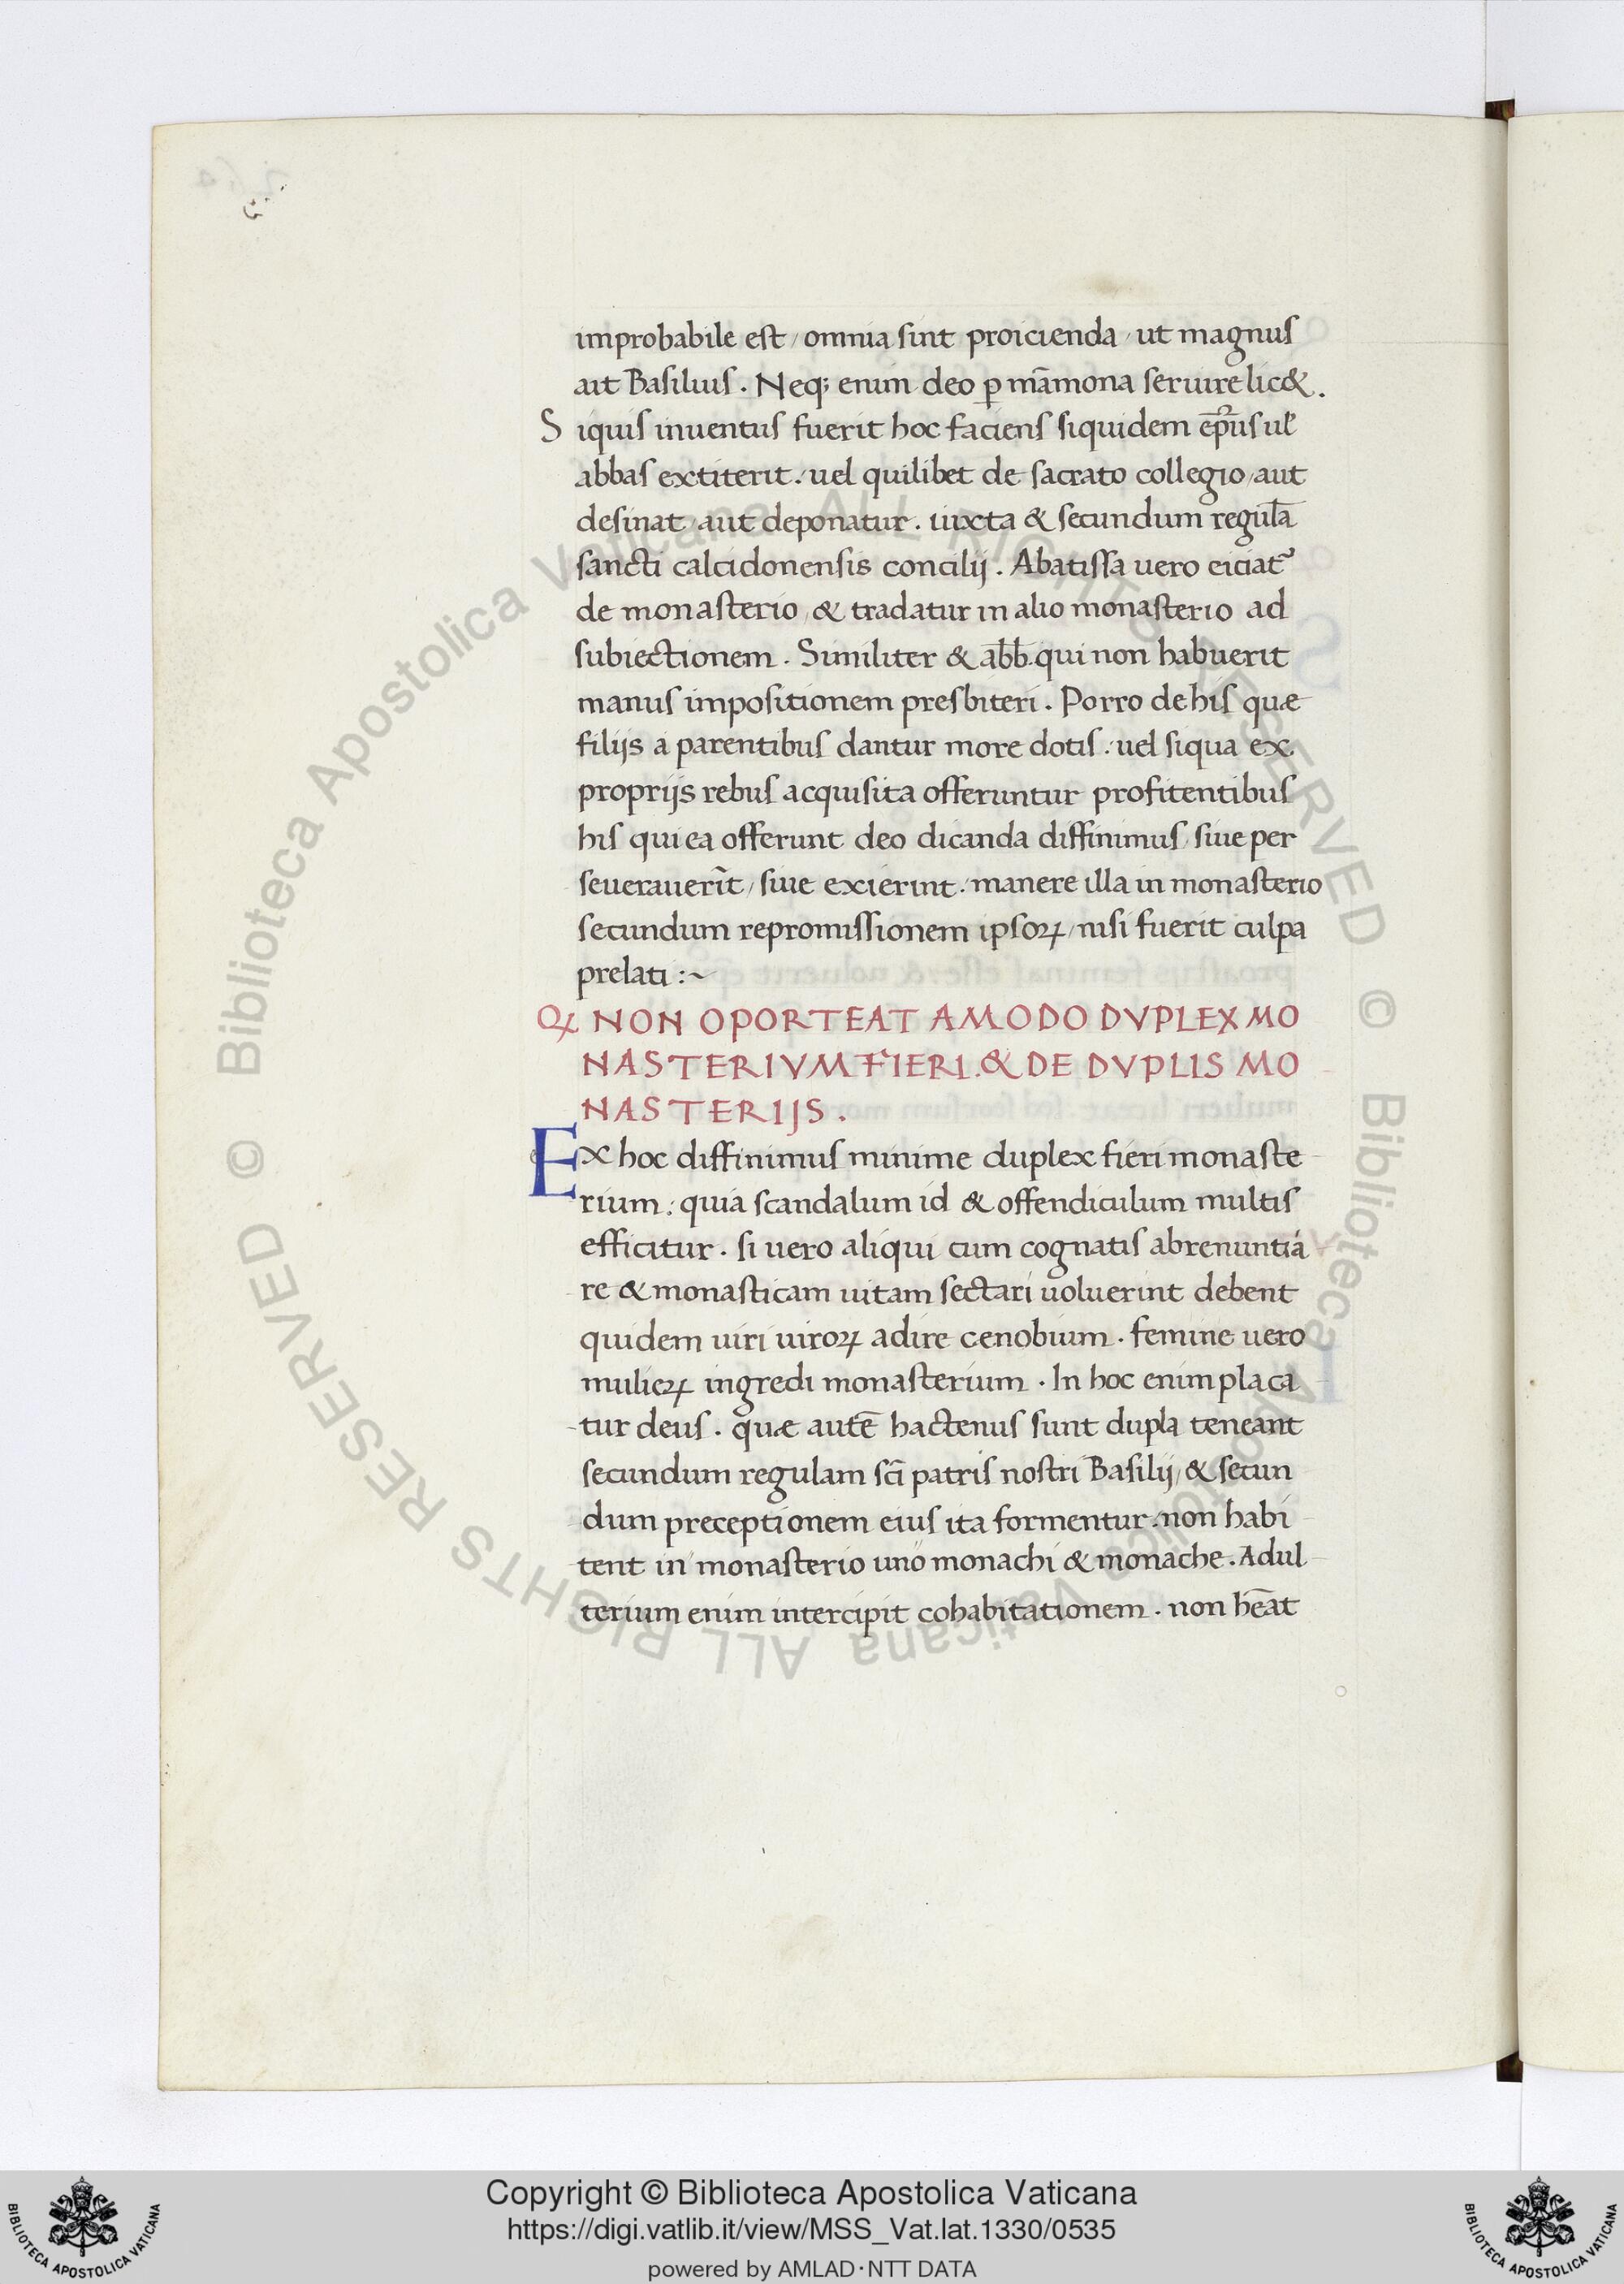 improbabile est / omnia sint proicienda / ut magnus
ait Basilius . Neq; enim deo ꝑ māmona seruire lic&.
S iquis inuentus fuerit hoc faciens siquidem ep̄us ul'
abbas extiterit . uel quilibet de sacrato collegio / aut
desinat aut deponatur . iuxta & secundum regulā
sancti calcidonensis concilij . Abatissa uero eiciat᷑
de monasterio / & tradatur in alio monasterio ad
subiectionem . Similiter & abb̄. qui non habuerit
manus impositionem presbiteri . Porro de his quæ
filijs a parentibus dantur more dotis . uel siqua ex
proprijs rebus acquisita offeruntur profitentibus
his qui ea offerunt deo dicanda diffinimus / siue per
seuerauerīt / siue exierint . manere illa in monasterio
secundum repromissionem ipsoꝝ / nisi fuerit culpa
prelati :~
Qꝝ NON OPORTEAT AMODO DVPLEX MO
NASTERIVM FIERI . & DE DVPLIS MO
NASTERIJS .
Ex hoc diffinimus minime duplex fieri monaste
rium : quia scandalum id & offendiculum multis
efficitur . si uero aliqui cum cognatis abrenuntia
re & monasticam uitam sectari uoluerint debent
quidem uiri uiroꝝ adire cenobium . femine uero
mulieꝝ ingredi monasterium . In hoc enim placa
tur deus . quæ autē hactenus sunt dupla teneant
secundum regulam sc̄i patris nostri Basilij / & secun
dum preceptionem eius ita formentur . non habi
tent in monasterio uno monachi & monache . Adul
terium enim intercipit cohabitationem . non hēat
© Biblioteca Apostolica Vaticana ALL RIGHTS RESERVED © Biblioteca Apostolica Vaticana ALL RIGHTS RESERVED
Copyright © Biblioteca Apostolica Vaticana
https://digi.vatlib.it/view/MSS_Vat.lat.1330/0535
powered by AMLAD·NTT DATA
BIBLIOTECA APOSTOLICA VATICANA
BIBLIOTECA APOSTOLICA VATICANA